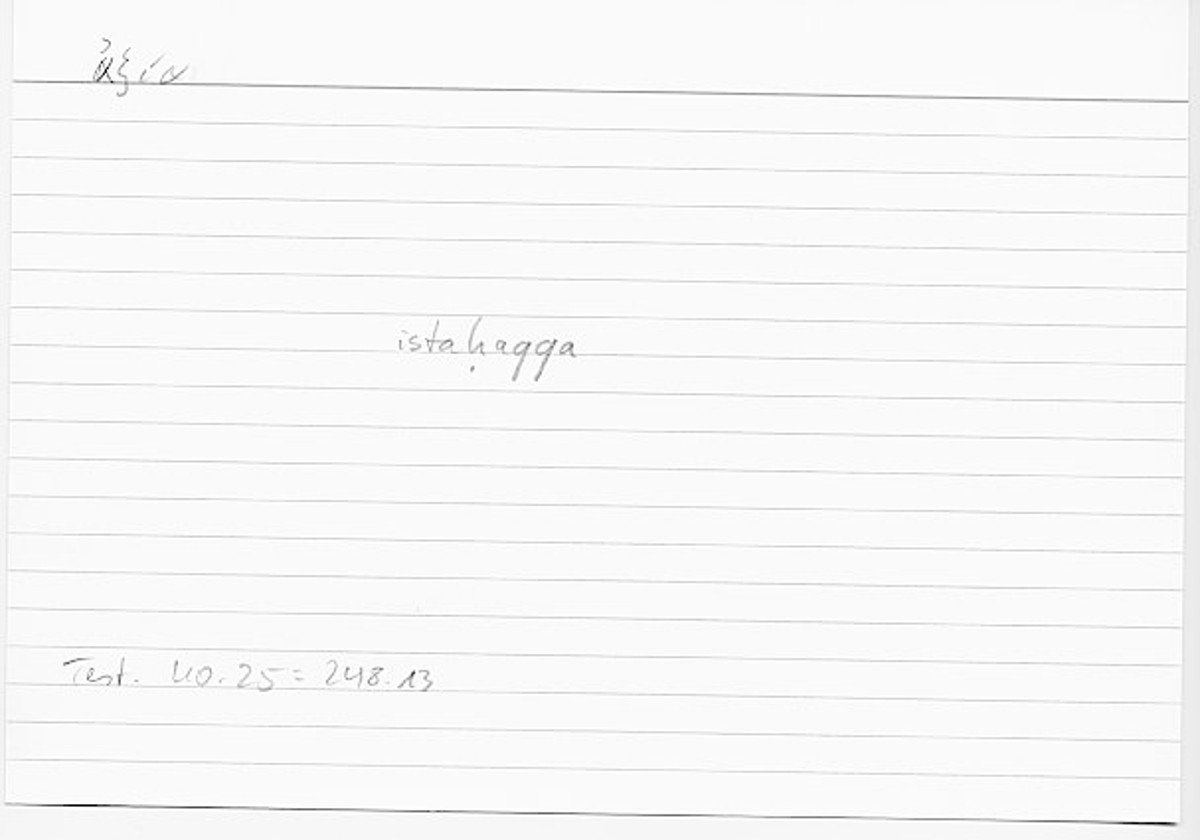 ἀξία
istaḥaqqa
Test. 40.25 = 248.13